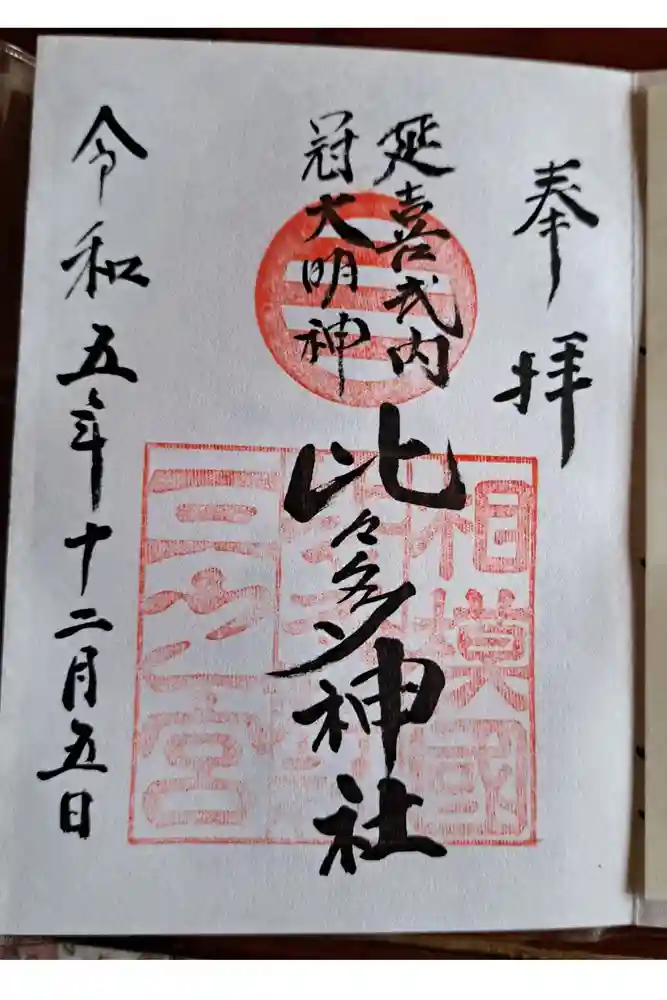 奉拝
延喜式内
冠大明神
比々多神社
相模國
三之宮
令和五年十二月五日